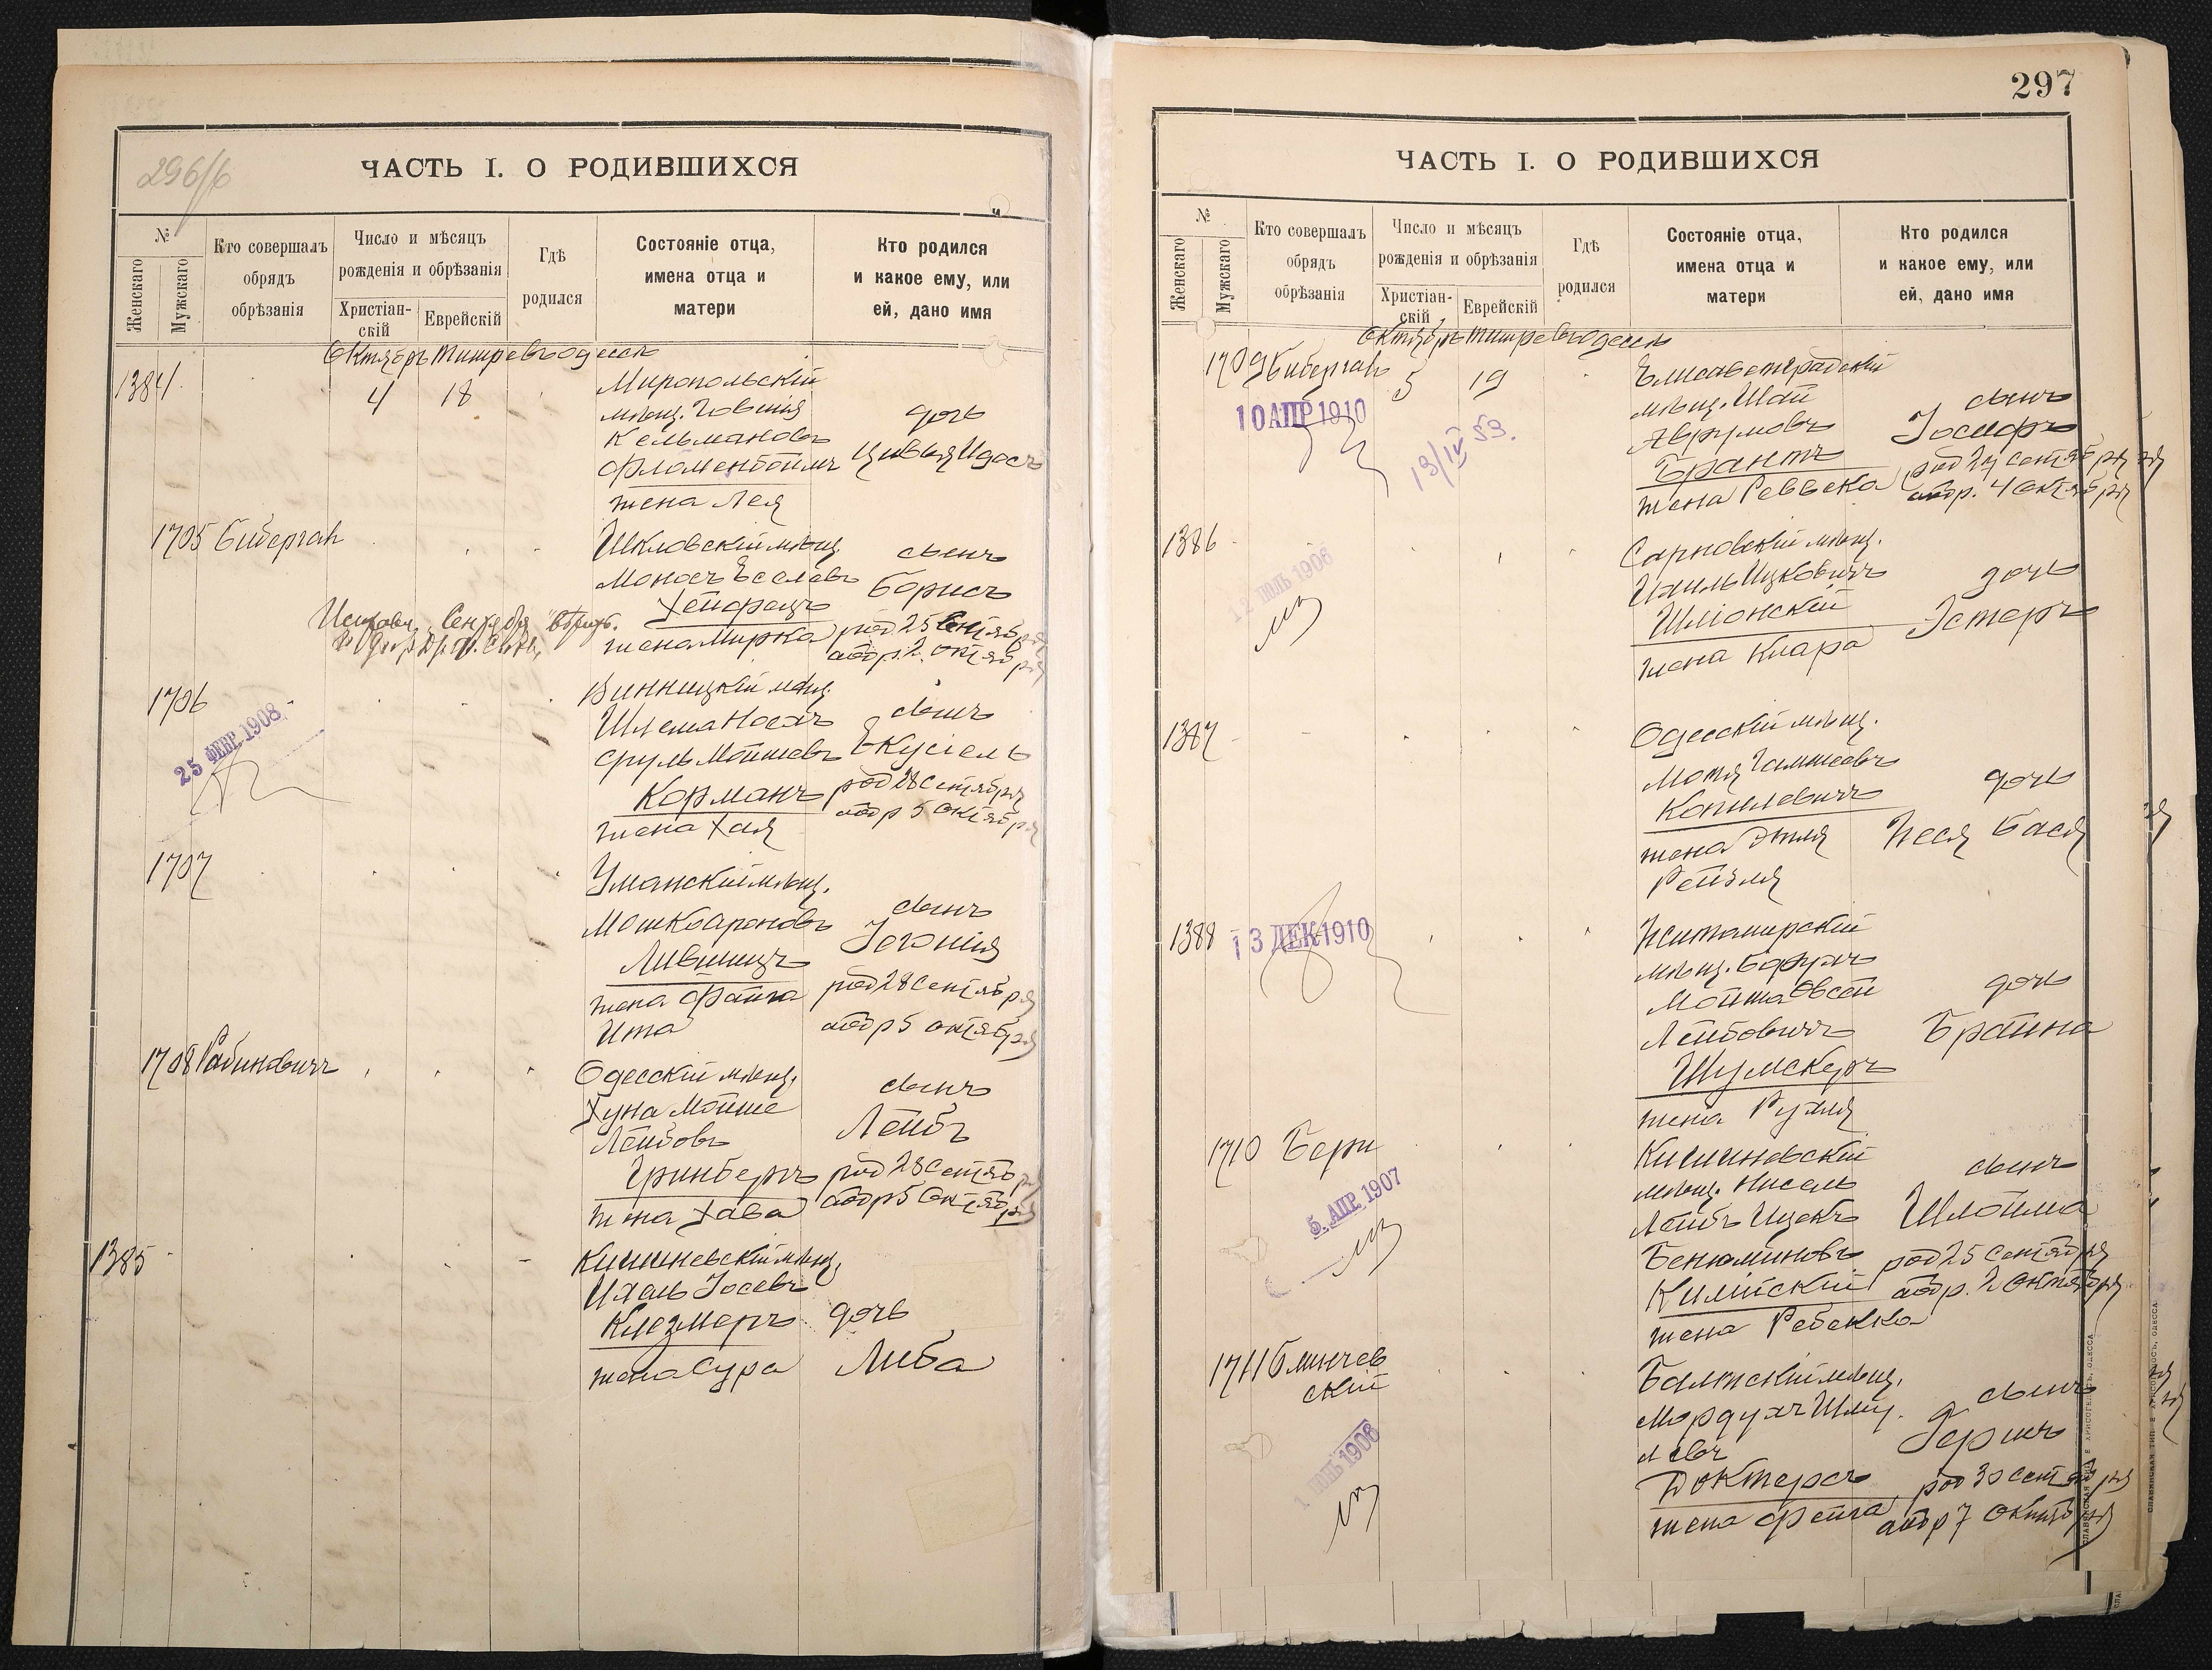 296/б
ЧАСТЬ I. О РОДИВШИХСЯ
№
Женскаго
Мужскаго
Кто совершалъ обрядъ обрѣзанія
Число и мѣсяцъ рожденія и обрѣзанія
Христіан-скій
Еврейскій
Гдѣ родился
Состояніе отца, имена отца и матери
Кто родился и какое ему, или ей, дано имя
Октябрь Тишре въ Одессѣ
1384
4
18
Миропольскій
мѣщ. Говшія
Кельмановъ
Фломенбоймъ
жена Лея
дочь
Цивья Идасъ
1705 Биберган
Шкловскій мѣщ.
Моносъ Еселевъ
Хейфецъ
жена Мирка
сынъ
Борисъ
род 25 Сентября
обр. 2 октября
1706
25 ФЕВР. 1908
Винницкій мѣщ.
Шлема Носехъ
Сруль Мошковъ
Корманъ
жена Хая
сынъ
Екусіель
род 28 Сентября
обр 5 Октября
1707
Уманскій мѣщ.
Мошко Ароновъ
Лившицъ
жена Фейга
Ита
сынъ
Іегошія
род 28 Сентября
обр 5 октября
1708 Рабиновичъ
Одесскій мѣщ.
Хуна Мойше
Лейбовъ
Гринбергъ
жена Хава
сынъ
Лейбъ
род 28 Сентября
обр 5 Октября
1385
Кишиневскій мѣщ.
Ихель Іосевъ
Клезмеръ
жена Сура
дочь
Либа
297
ЧАСТЬ I. О РОДИВШИХСЯ
№
Женскаго
Мужскаго
Кто совершалъ обрядъ обрѣзанія
Число и мѣсяцъ рожденія и обрѣзанія
Христіан-скій
Еврейскій
Гдѣ родился
Состояніе отца, имена отца и матери
Кто родился и какое ему, или ей, дано имя
Октябрь Тишре въ Одессѣ
1709 Биберган
5
19
10 АПР 1910
13/IV 53.
Елисаветградскій
мѣщ. Шая
Аврумовъ
Брантъ
жена Реввека
сынъ
Іосифъ
род 27 Сентября
обр. 4 Октября
1386
12 ІЮЛЬ 1906
Сарновскій мѣщ.
Ихиль Ицковичъ
Шліонскій
жена Клара
дочь
Эстеръ
1387
Одесскій мѣщ.
Мотя
Копилевичъ
жена Этля
Рейзля
дочь
Неся Бася
1388
13 ДЕК 1910
Житомирскій
мѣщ. Борухъ
Мойша Овсей
Лейбовичъ
Шумскеръ
жена Рухля
дочь
Брайна
1710 Бери
5. АПР. 1907
Кишиневскій
мѣщ. Нисель
Лейбъ Ицекъ
Бенюминовъ
Килійскій
жена Ребекка
сынъ
Шлойма
род 25 Сентября
обр. 2 Октября
1711 Блинчев
скій
1. ІЮНЬ 1906
Балтскій мѣщ.
Мордухъ Шму
левъ
Докторсъ
жена Фейга
сынъ
Гершъ
род 30 Сентября
обр 7 Октября